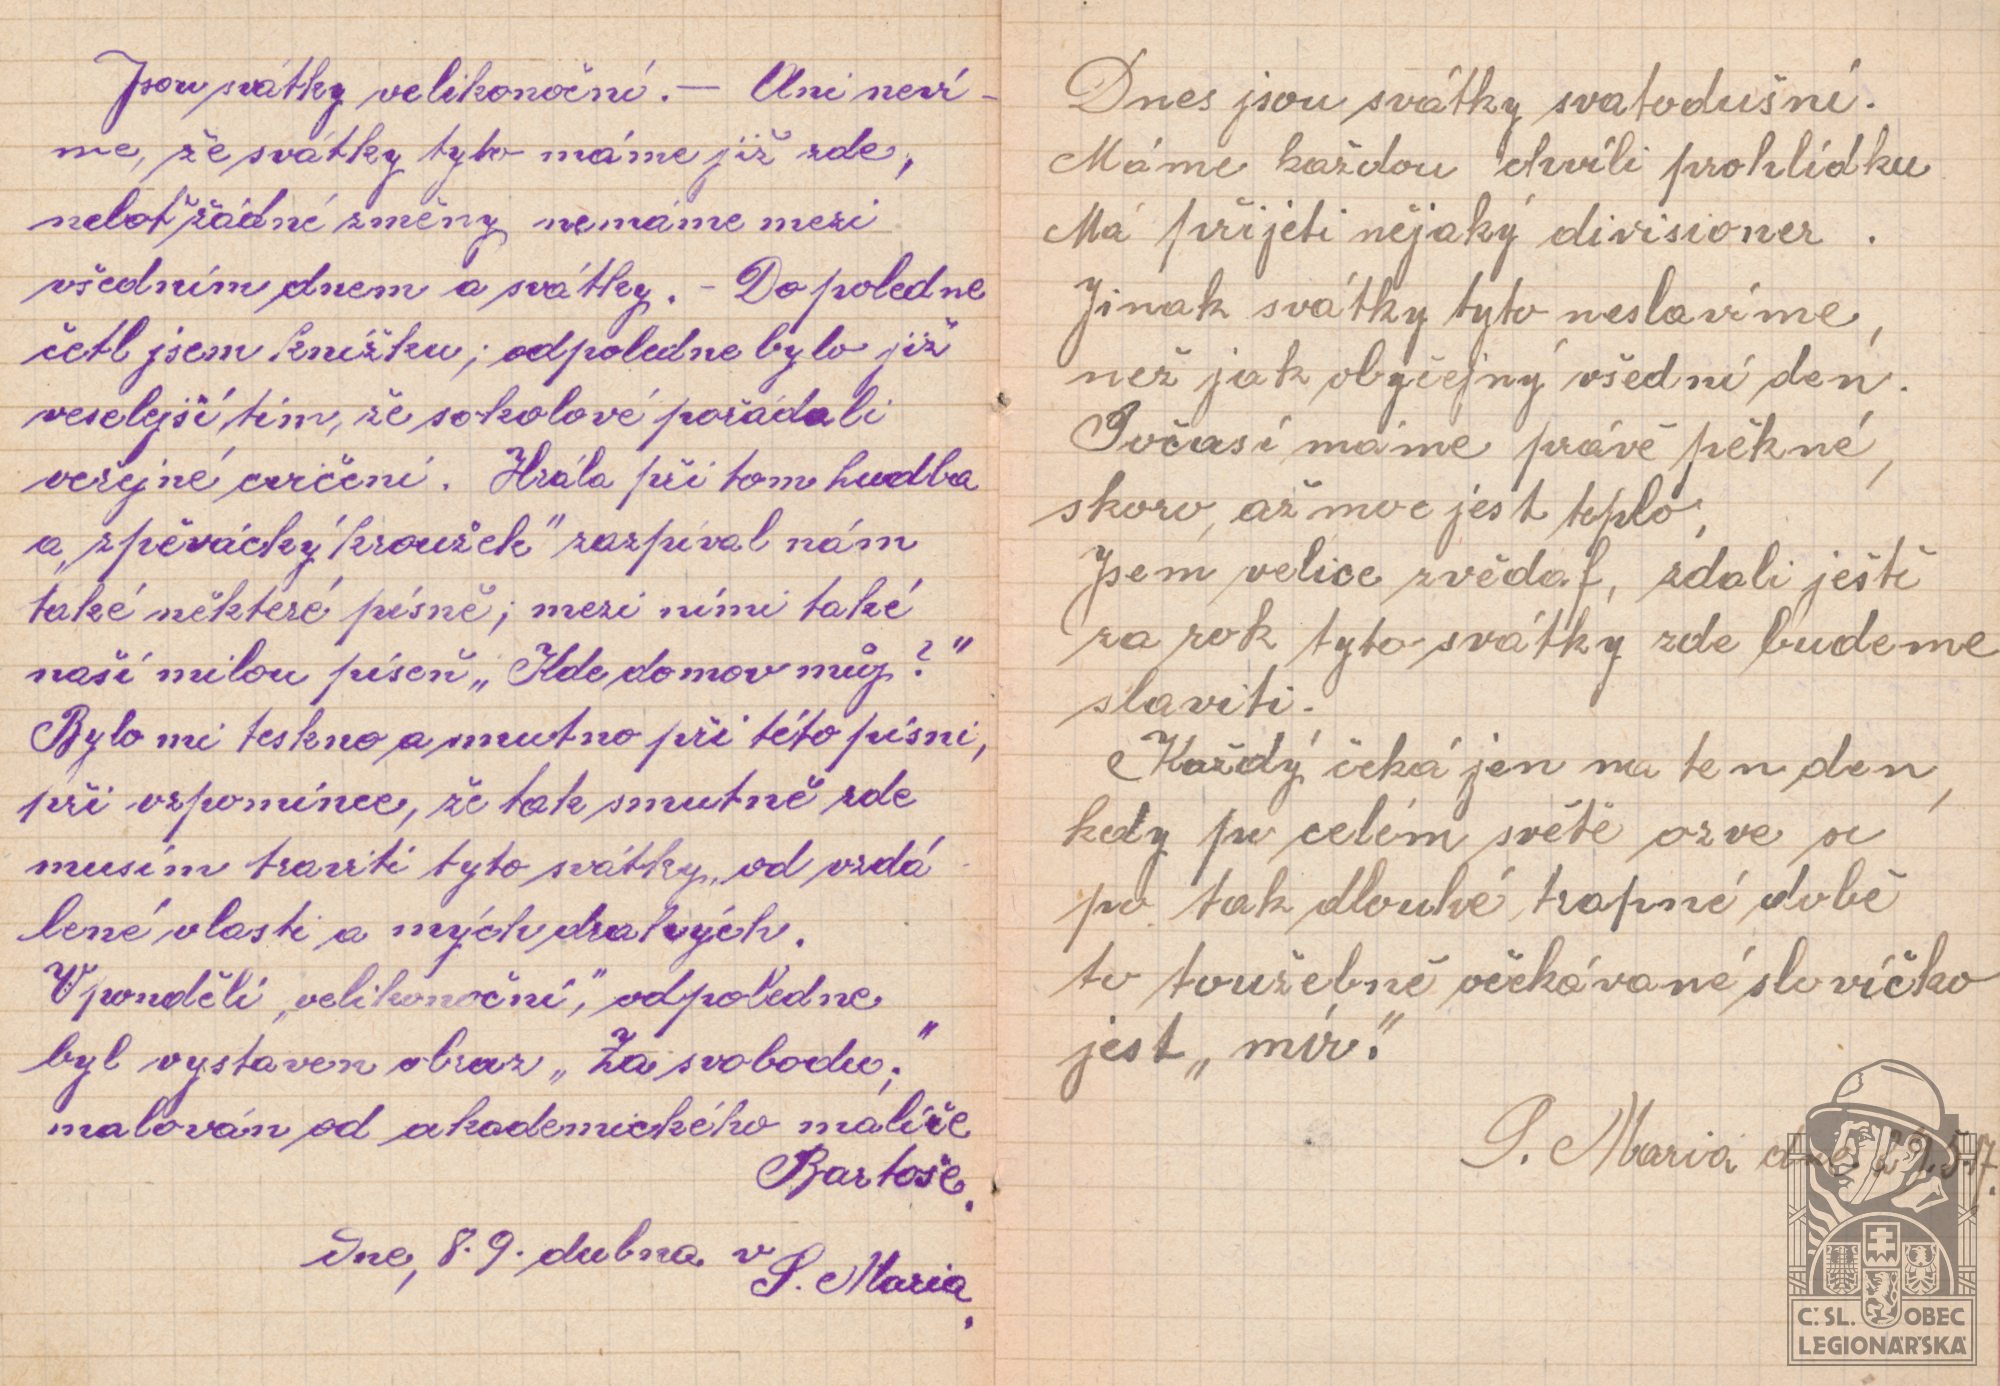 Jsou svátky velikonoční. — Ani neví-
me, že svátky tyto máme již zde,
neboť žádné změny nemáme mezi
všedním dnem a svátky. - Dopoledne
četl jsem knížku; odpoledne bylo již
veselejší tím, že sokolové pořádali
veřejné cvičení. Hrála při tom hudba
a „zpěvácký kroužek" zazpíval nám
také některé písně; mezi nimi také
naší milou píseň „Kde domov můj?"
Bylo mi teskno a smutno při této písni,
při vzpomínce, že tak smutně zde
musím traviti tyto svátky, od vzdá-
lené vlasti a mých drahých.
V pondělí „velikonoční", odpoledne
byl vystaven obraz „Za svobodu;"
malován od akademického malíře
Bartoše.
Dne, 8.9. dubna v
S. Maria.
Dnes jsou svátky svatodušní.
Máme každou chvíli prohlídku
Má přijeti nějaký divisioner.
Jinak svátky tyto neslavíme,
než jak obyčejný všední den.
Počasí máme právě pěkné,
skoro, až moc jest teplo,
Jsem velice zvědaf, zdali ještě
za rok tyto svátky zde budeme
slaviti.
Každý čeká jen na ten den,
kdy po celém světě ozve se
po tak dlouhé trapné době
to toužebně očekávané slovíčko
jest „mír."
S. Maria dne 5.17.
Č. SL. OBEC
LEGIONÁŘSKÁ